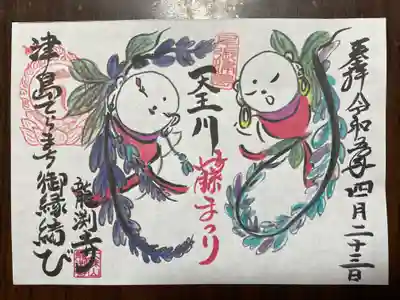 奉拝 令和五年四月二十三日
天王川
藤まつり
津島てらまち御縁結び
龍渕寺